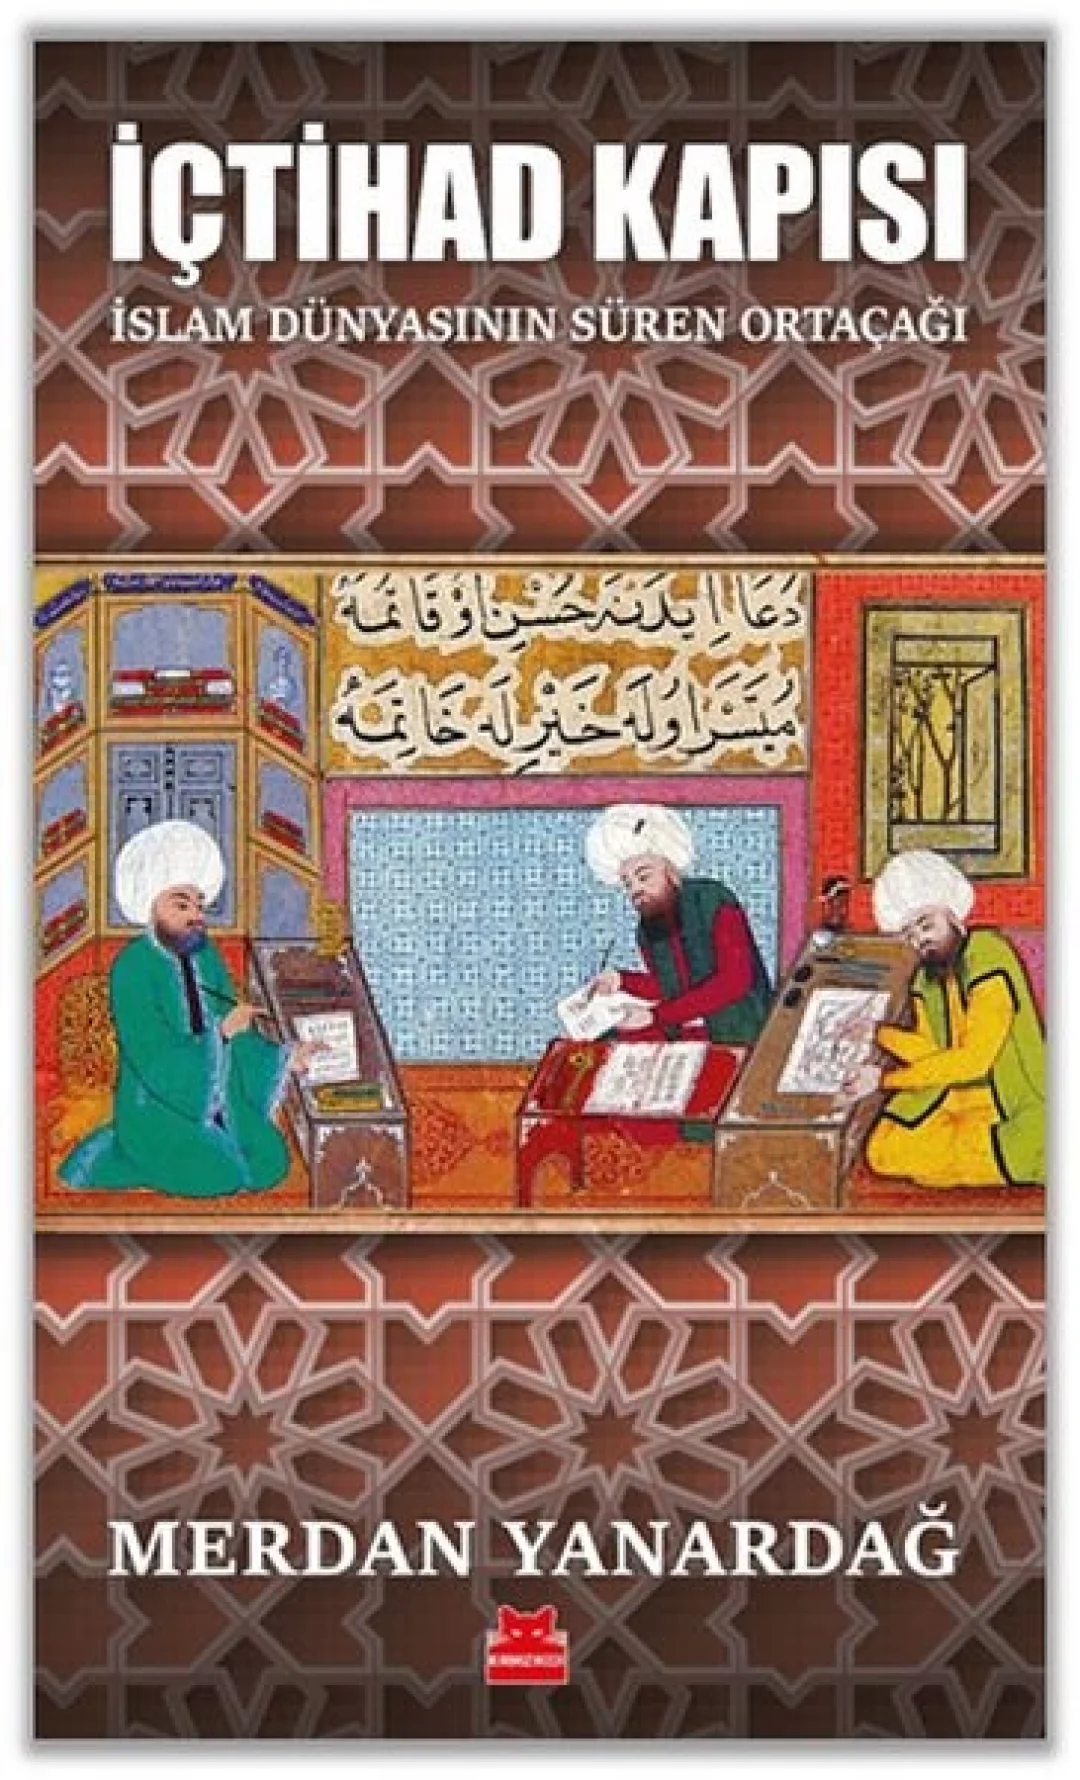 İÇTİHAD KAPISI
İSLAM DÜNYASININ SÜREN ORTAÇAĞI
دعا ايدنه حسن اوقاتمه
ميسر اوله خير له خاتمه
MERDAN YANARDAĞ